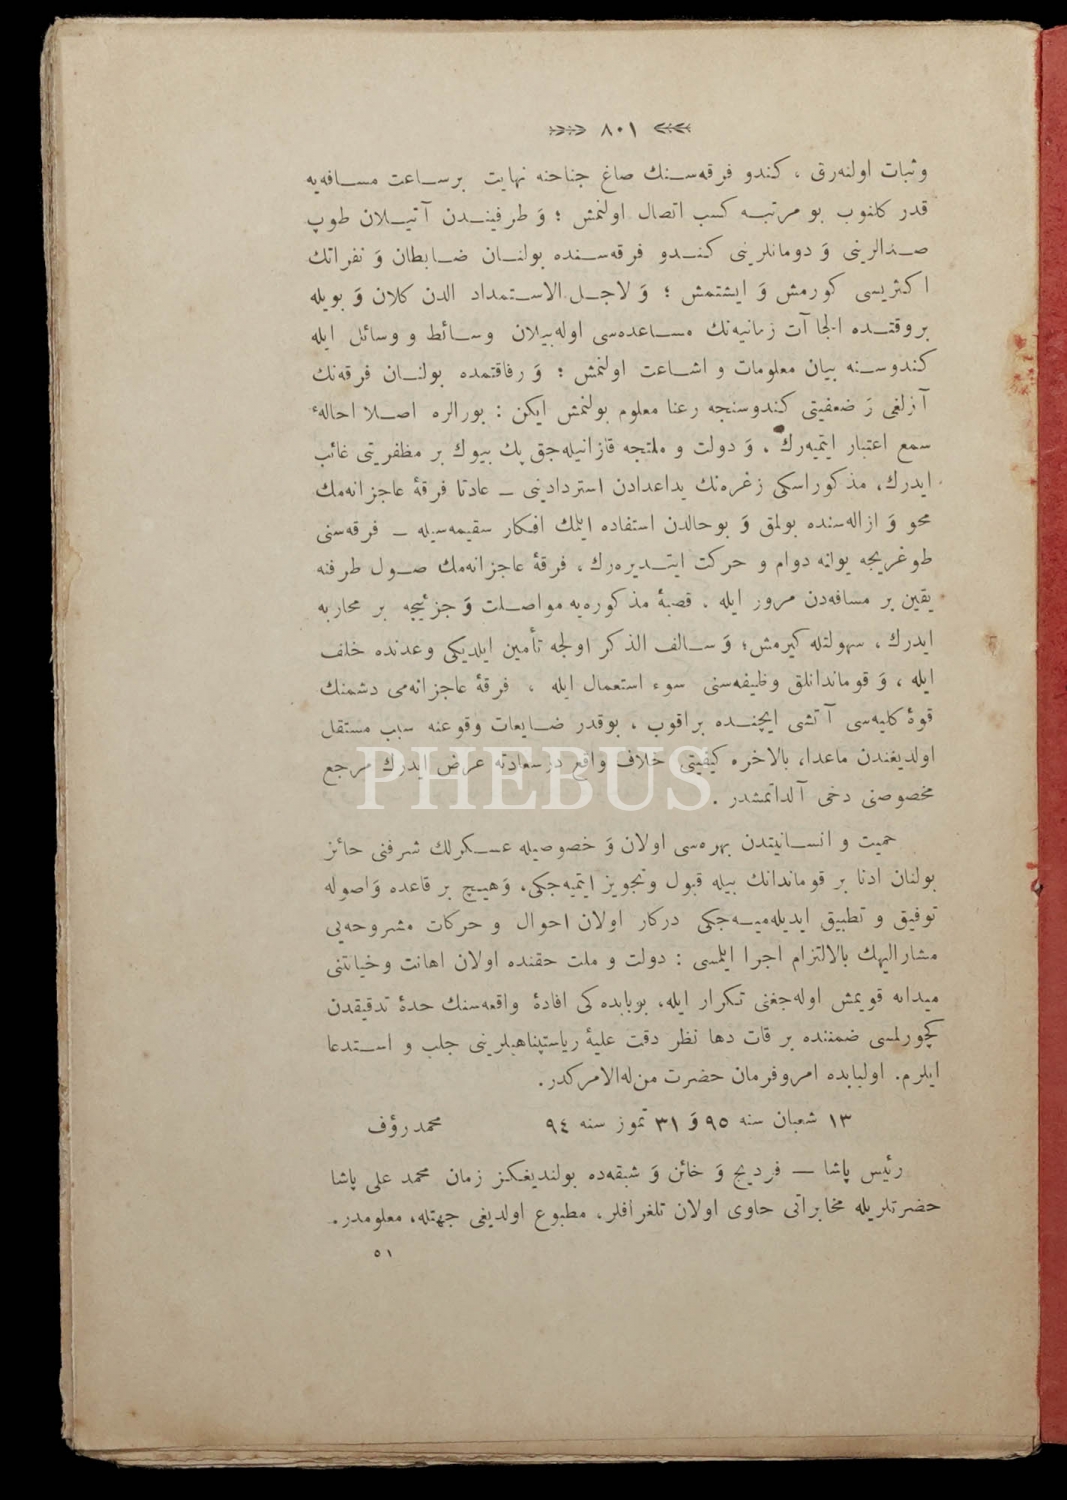 ٨٠١
وثبات اولنه‌رق ، كندو فرقه‌سنك صاغ جناحنه نهايت برساعت مسافه‌يه
قدر كلنوب بو مرتبه كسب اتصال اولنمش ؛ وَ طرفيندن آتيلان طوپ
صدالرينى وَ دومانلرينى كندو فرقه‌سنده بولنان ضابطان وَ نفراتك
اكثريسى كورمش وَ ايشتمش ؛ وَ لاجل الاستمداد الدن كلان وَ بويله
بروقتده الجاآت زمانيه‌نك مساعده‌سى اوله‌بيلان وسائط و وسائل ايله
كندوسنه بيان معلومات و اشاعت اولنمش ؛ وَ رفاقتمده بولنان فرقه‌نك
آزلغى وَ ضعفيتى كندوسنجه رعنا معلوم بولنمش ايكن : بورالره اصلا احالهٔ
سمع اعتبار ايتميه‌رك ، وَ دولت و ملتجه قازانيله‌جق پك بيوك بر مظفريتى غائب
ايدرك، مذكور اسكى زغره‌نك يداعدادن استردادينى ــ عادتا فرقهٔ عاجزانه‌مك
محو وَ ازاله‌سنده بولمق وَ بوحالدن استفاده ايلمك افكار سقيمه‌سيله ــ فرقه‌سنى
طوغريجه يولنه دوام و حركت ايتديره‌رك ، فرقهٔ عاجزانه‌مك صول طرفنه
يقين بر مسافه‌دن مرور ايله ، قصبهٔ مذكوره‌يه مواصلت وَ جزئيجه بر محاربه
ايدرك ، سهولتله كيرمش؛ وَ سالف الذكر اولجه تأمين ايلديكى وعدنده خلف
ايله ، وَ قوماندانلق وظيفه‌سنى سوء استعمال ايله ، فرقهٔ عاجزانه‌مى دشمنك
قوهٔ كليه‌سى آتشى ايچنده براقوب ، بوقدر ضايعات وقوعنه سبب مستقل
اولديغندن ماعدا، بالاخره كيفيتى خلاف واقع درسعادته عرض ايدرك مرجع
مخصوصنى دخى آلداتمشدر .
حميت و انسانيتدن بهره‌سى اولان وَ خصوصيله عسكرلك شرفنى حائز
بولنان ادنا بر قوماندانك بيله قبول وتجويز ايتميه‌جكى، وَهيچ بر قاعده وَاصوله
توفيق و تطبيق ايديله‌ميه‌جكى دركار اولان احوال و حركات مشروحه‌يى
مشاراليهك بالالتزام اجرا ايلمسى : دولت و ملت حقنده اولان اهانت وخيانتنى
ميدانه قويمش اوله‌جغنى تكرار ايله، بوبابده‌كى افادهٔ واقعه‌سنك حدهٔ تدقيقدن
كچورلمسى ضمننده بر قات دها نظر دقت عليهٔ رياستپناهيلرينى جلب و استدعا
ايلرم. اولبابده امروفرمان حضرت من‌له‌الامركدر.
١٣ شعبان سنه ٩٥ وَ ٣١ تموز سنه ٩٤ محمد رؤف
رئيس پاشا — فرديج وَ خائن وَ شبقه‌ده بولنديغكز زمان محمد على پاشا
حضرتلريله مخابراتى حاوى اولان تلغرافلر، مطبوع اولديغى جهتله، معلومدر.
٥١
PHEBUS